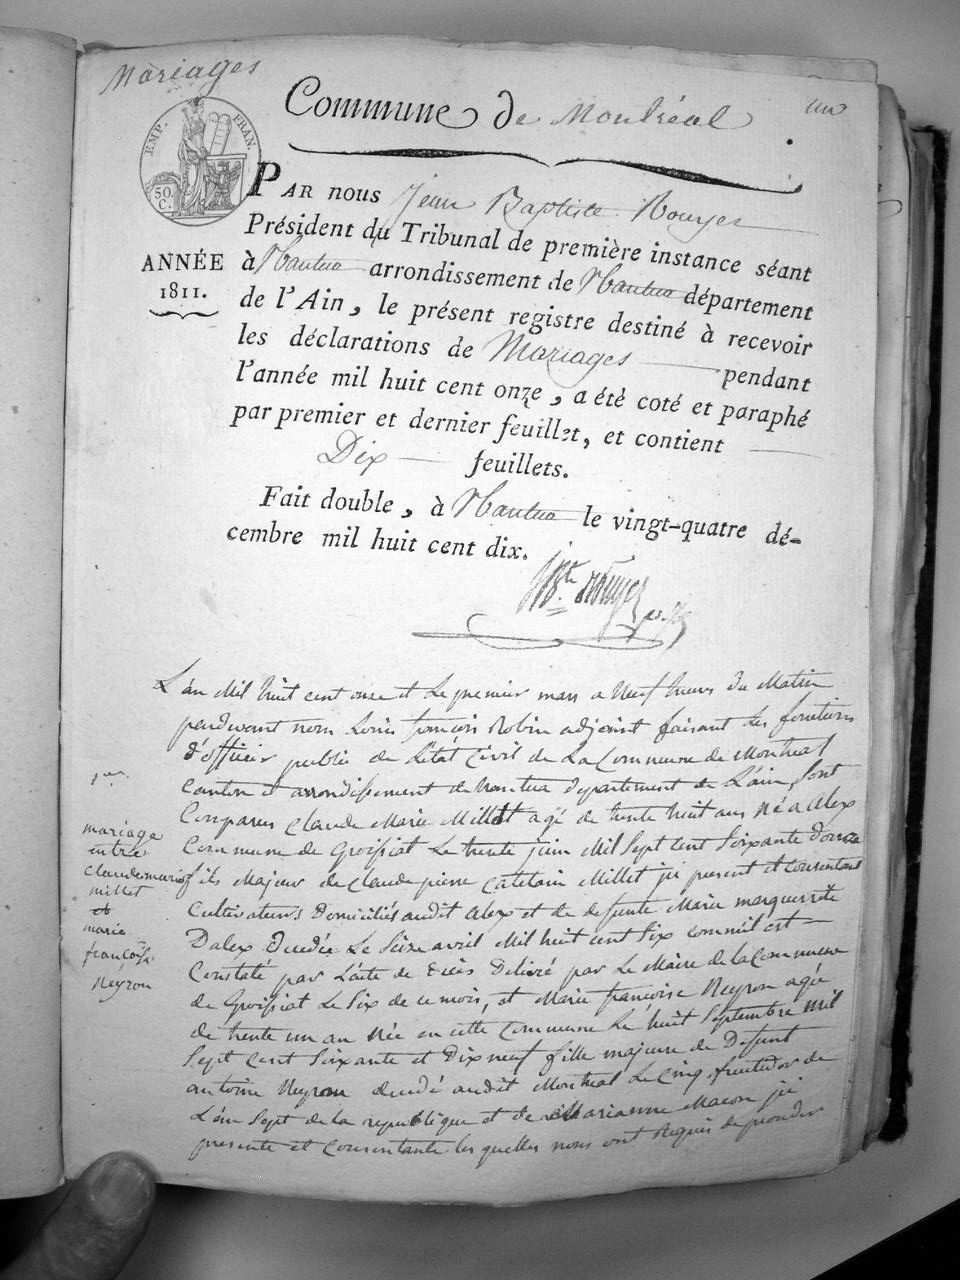 Mariages
Commune de Montréal
un
EMP. FRAN.
50 C.
PAR nous Jean Baptiste Rouyer
Président du Tribunal de première instance séant
à Nantua arrondissement de Nantua département
de l'Ain, le présent registre destiné à recevoir
les déclarations de Mariages pendant
l'année mil huit cent onze, a étè coté et paraphé
par premier et dernier feuillet, et contient
Dix feuillets.
Fait double, à Nantua le vingt-quatre dé-
cembre mil huit cent dix.
ANNÉE
1811.
L'an Mil huit cent onze et Le premier mars a Neuf heures du Matin
pardevant nous Louis françois Robin adjoint faisant Les fonctions
d'officier public de L'état Civil de La Commune de Montreal
Canton et arrondissement de Nantua Departement de L'ain, Sont
Comparus Claude Marie Millet agé de trente huit ans Né a alex
Commune de Groissiat Le trente juin Mil Sept Cent Soixante douze
fils Majeur de Claude pierre Millet ici present et Consentant
Cultivateurs Domiciliés audit alex et de defunte Marie margueritte
Dalex Decedée Le Seize avril Mil huit cent Six comme il est
Constaté par L'acte de Décès Delivré par Le Maire de la Commune
de Groissiat Le Six de ce mois, et Marie françoise Neyron agée
de trente un an Née en cette Commune Le huit Septembre Mil
Sept Cent Soixante et Dix neuf fille majeure de Defunt
antoine Neyron decedé audit Montreal Le Cinq fructidor de
L'an Sept de la republique et de Marianne Macon ici
presente et Consentante les quelles nous ont Requis de proceder
1er
mariage
entre
Claude marie
millet
et
marie
françoise
Neyron